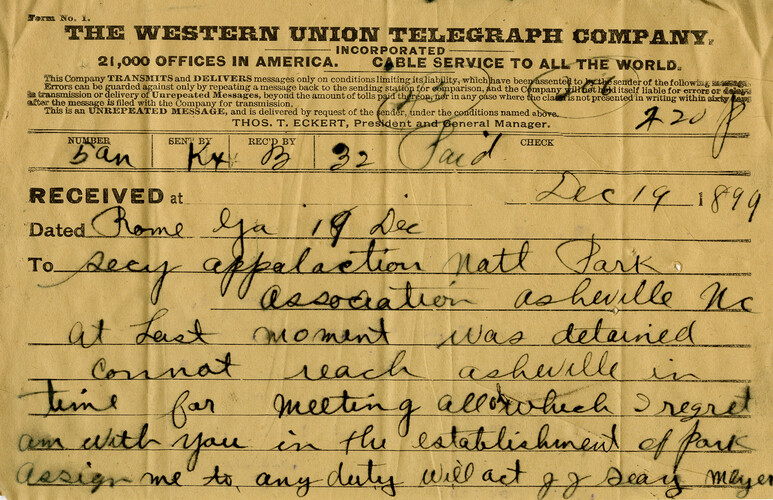 Form No. 1.
THE WESTERN UNION TELEGRAPH COMPANY.
INCORPORATED
21,000 OFFICES IN AMERICA. CABLE SERVICE TO ALL THE WORLD.
This Company TRANSMITS and DELIVERS messages only on conditions limiting its liability, which have been assented to by the sender of the following message.
Errors can be guarded against only by repeating a message back to the sending station for comparison, and the Company will not hold itself liable for errors or delays
in transmission or delivery of Unrepeated Messages, beyond the amount of tolls paid thereon, nor in any case where the claim is not presented in writing within sixty days
after the message is filed with the Company for transmission.
This is an UNREPEATED MESSAGE, and is delivered by request of the sender, under the conditions named above.
THOS. T. ECKERT, President and General Manager.
220 P
NUMBER SENT BY REC'D BY CHECK
5an Kx B 32 Paid
RECEIVED at Dec 19 1899
Dated Rome Ga 19 Dec
To Secy appalaction Natl Park
Association asheville Nc
At Last moment was detained
Connot reach asheville in
time for meeting all of which I regret
am with you in the establishment of Park
Assign me to any duty will act J J Seay Mayor